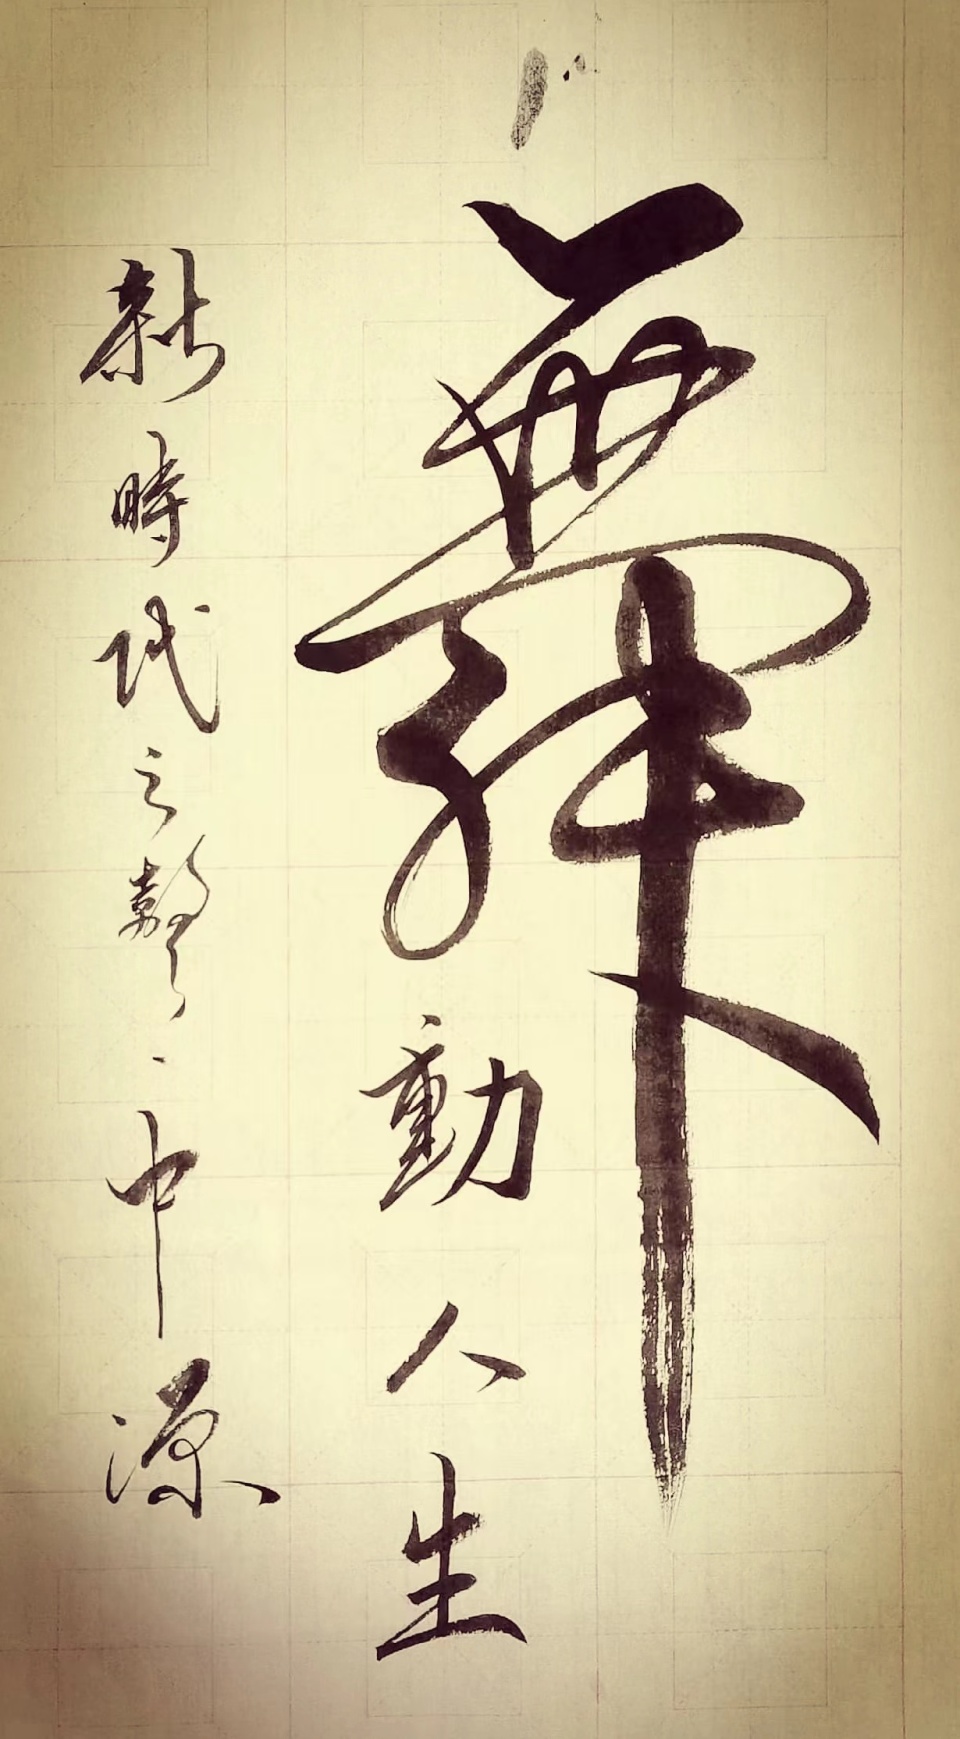 舞
動人生
新時代之聲、中源